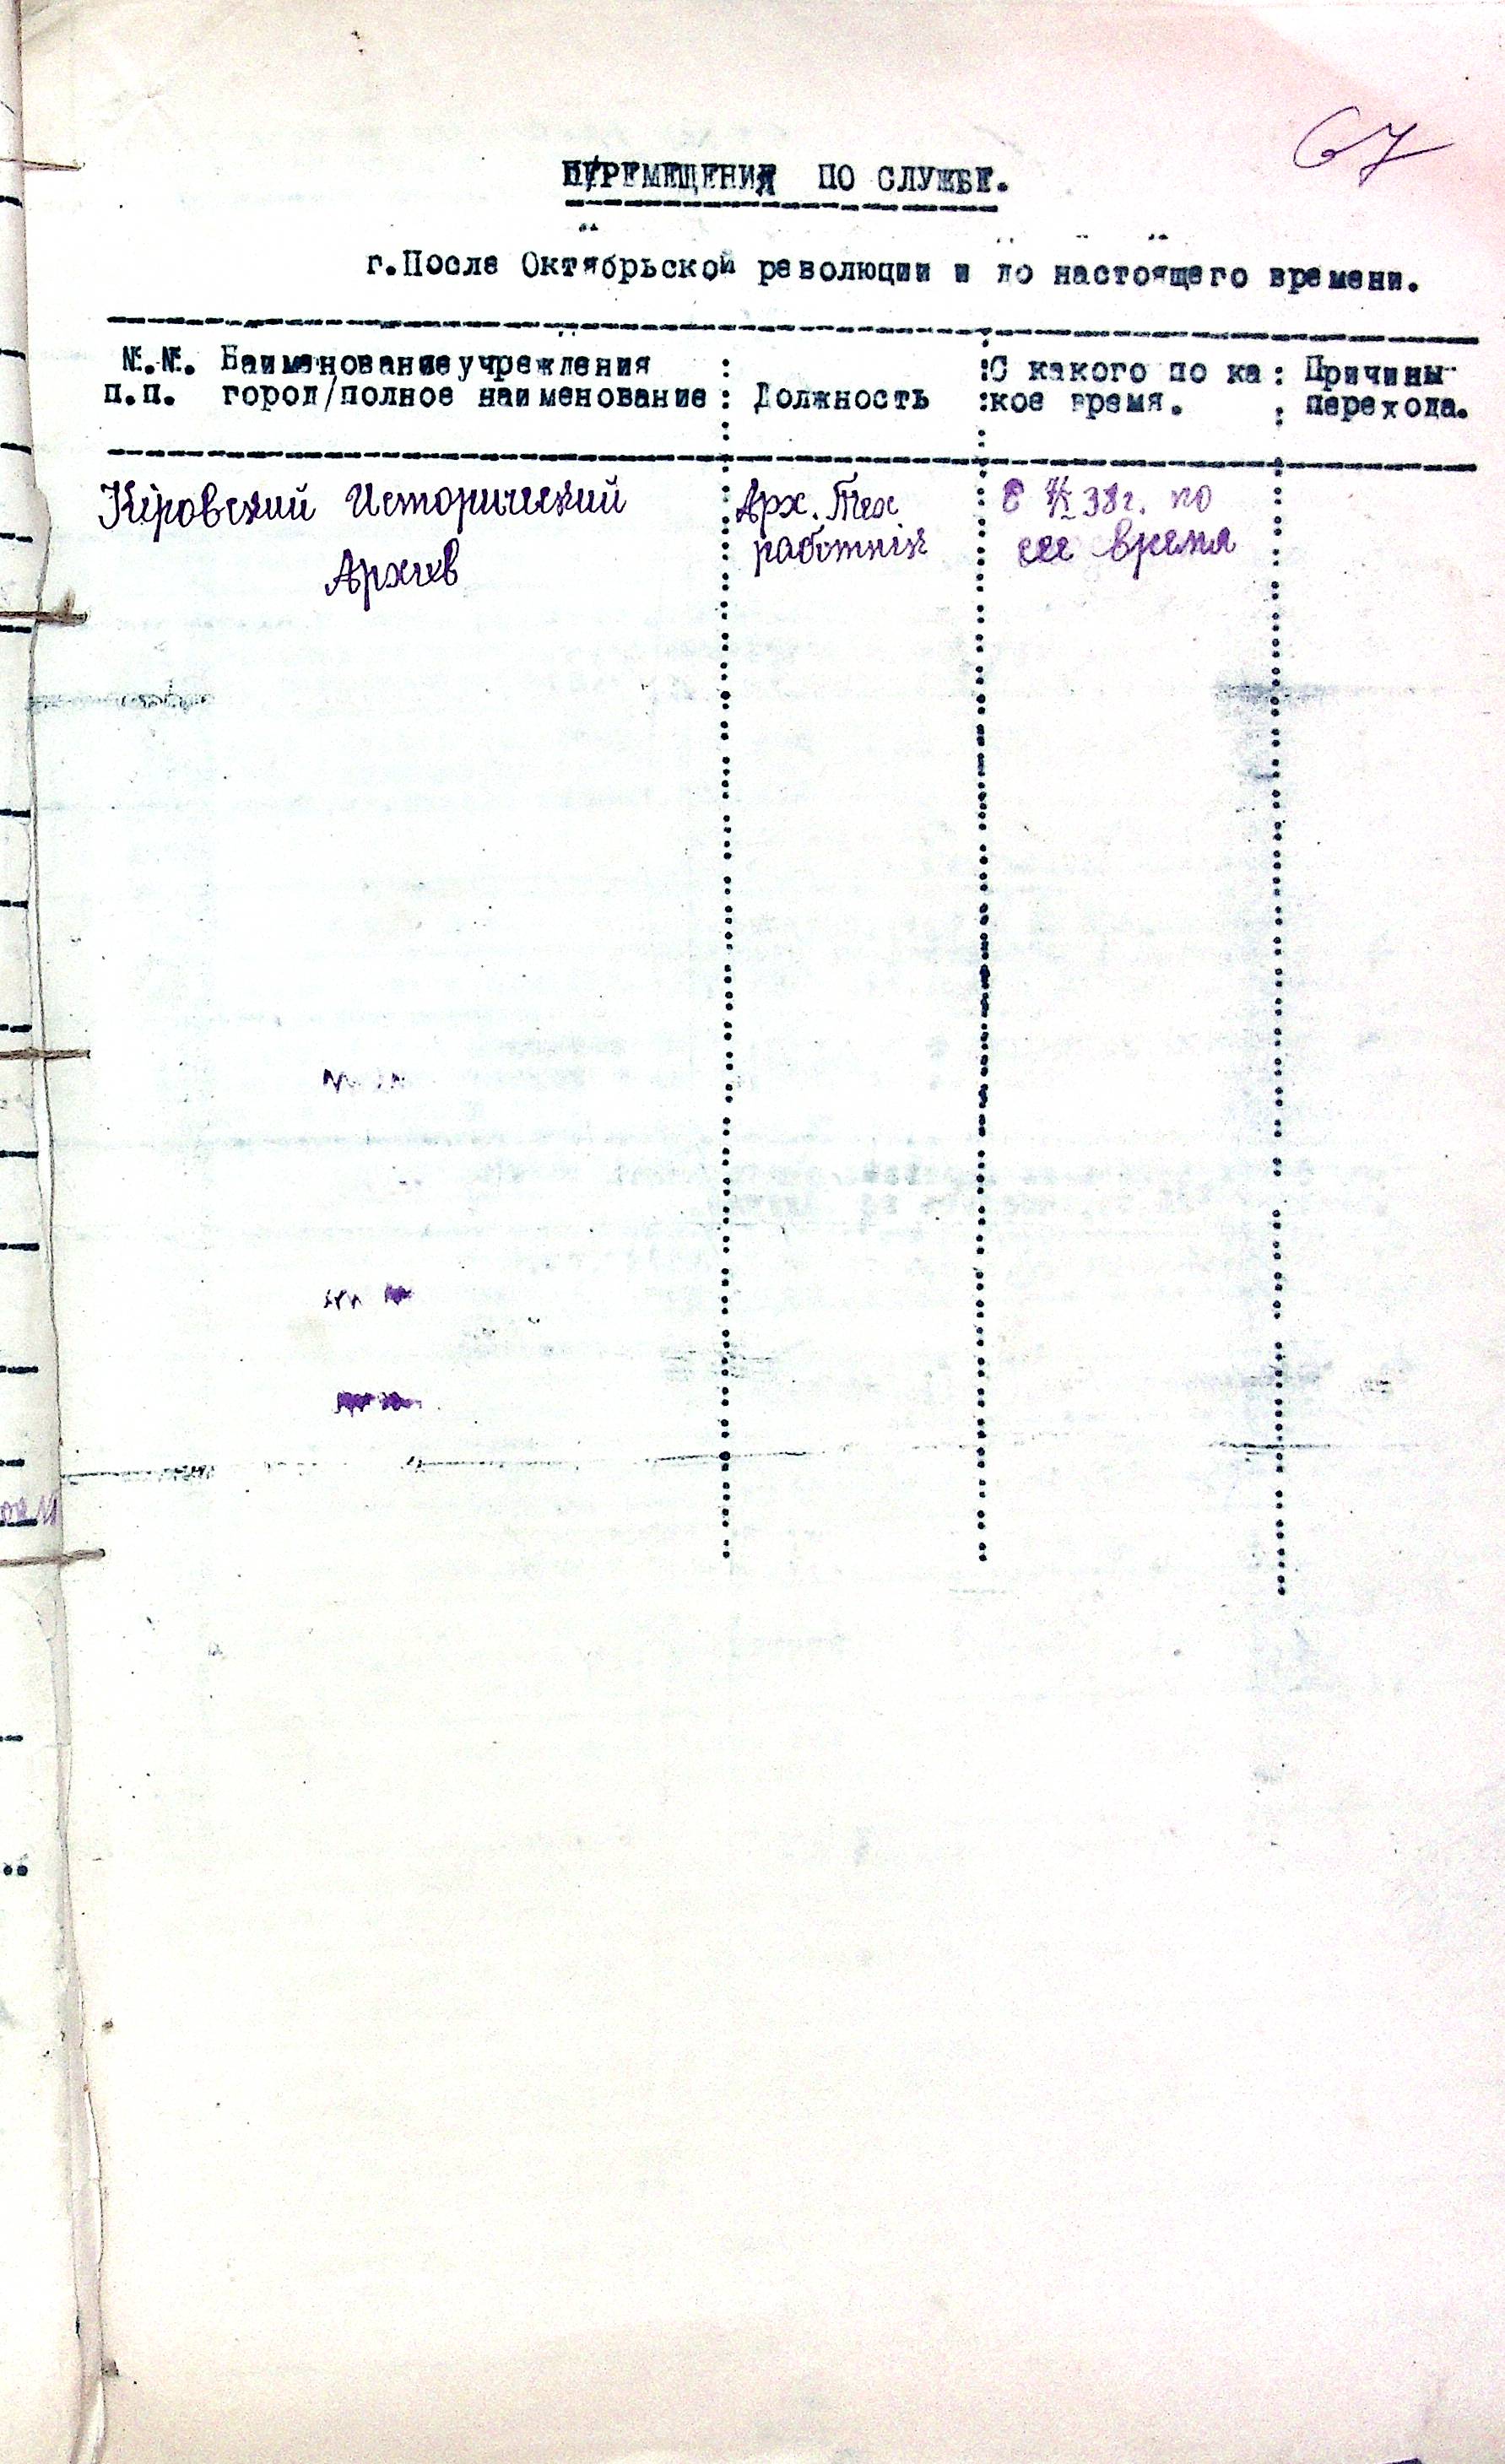 67
ПЕРЕМЕЩЕНИЯ ПО СЛУЖБЕ.
г.После Октябрьской революции и до настоящего времени.
№.№. Наименование учреждения : :С какого по ка : Причины
п.п. город/полное наименование : Должность :кое время. : перехода.
Кировский Исторический Арх. Тех С по
Архив работник сее время